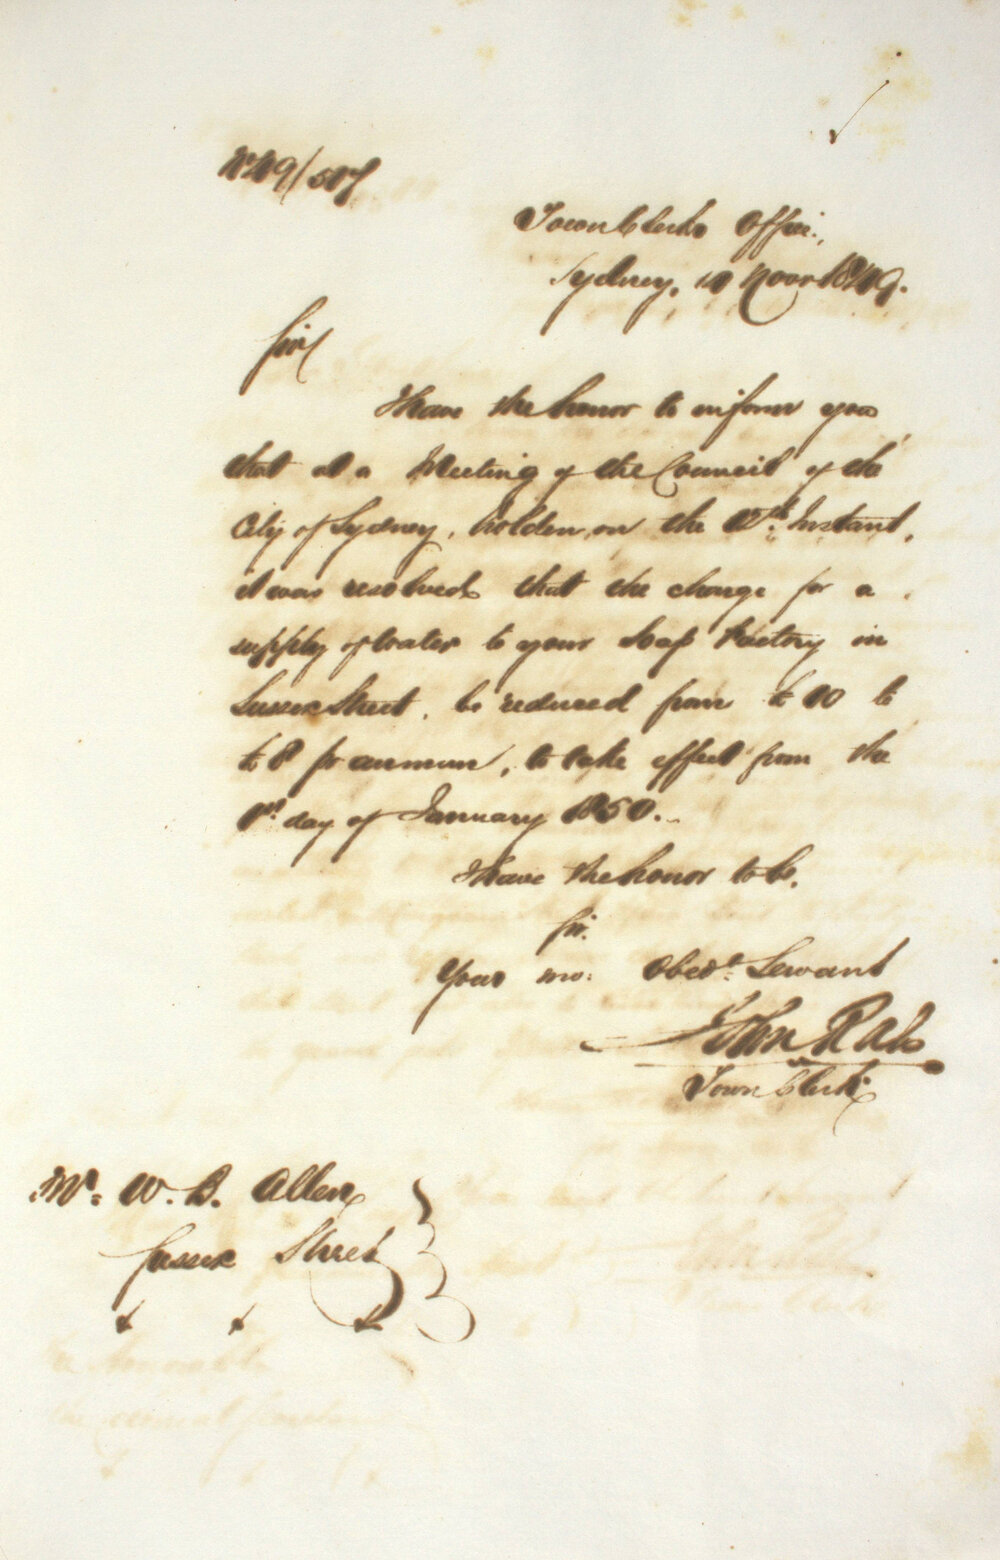 No 49/507
Town Clerk's Office,
Sydney, 14 Novr 1849.
Sir,
I have the honor to inform you,
that at a Meeting of the Council of the
City of Sydney, holden on the 12th Instant,
it was resolved that the charge for a
supply of water to your Soap Factory in
Sussex Street, be reduced from £10 to
£8 pr annum, to take effect from the
1st day of January 1850.
I have the honor to be,
Sir,
Your mo: Obedt Servant
John Rae
Town Clerk
Mr W. B. Allen
Sussex Street